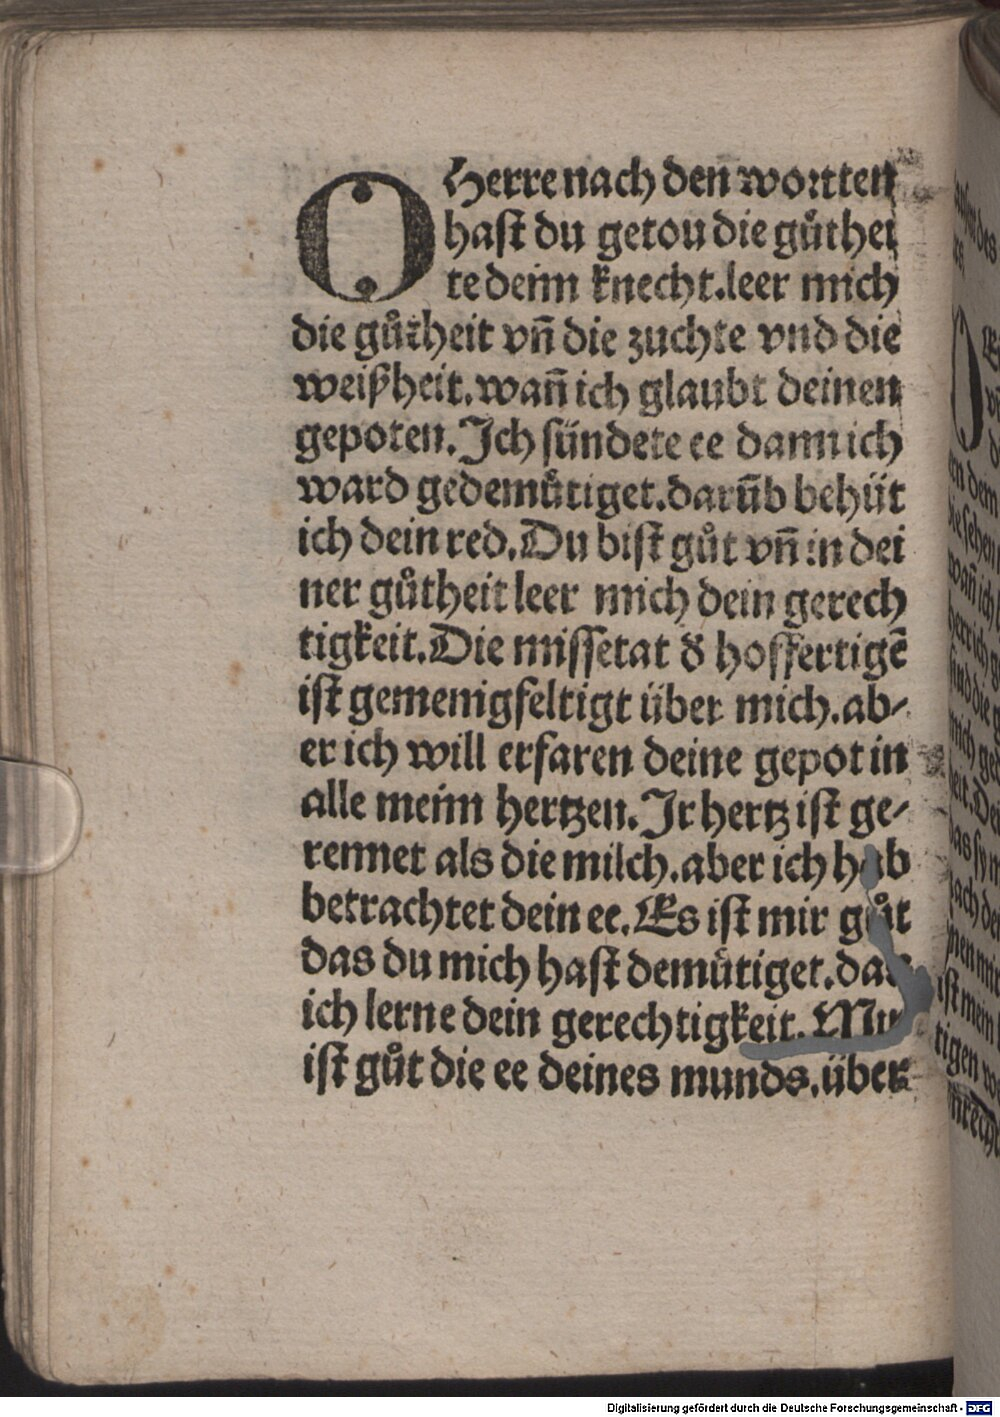 O Herre nach den wortten
hast du getou die gůthei
te deim knecht. leer mich
die gůtheit vñ die zuchte vnd die
weißheit. wañ ich glaubt deinen
gepoten. Ich sündete ee dann ich
ward gedemütiget. darūb behüt
ich dein red. Du bist gůt vñ in dei
ner gůtheit leer mich dein gerech
tigkeit. Die missetat d̕ hoffertigē
ist gemenigfeltigt über mich. ab-
er ich will erfaren deine gepot in
alle meim hertzen. Ir hertz ist ge-
rennet als die milch. aber ich hab
betrachtet dein ee. Es ist mir gůt
das du mich hast demütiget. das
ich lerne dein gerechtigkeit. Mir
ist gůt die ee deines munds. über
Digitalisierung gefördert durch die Deutsche Forschungsgemeinschaft - DFG